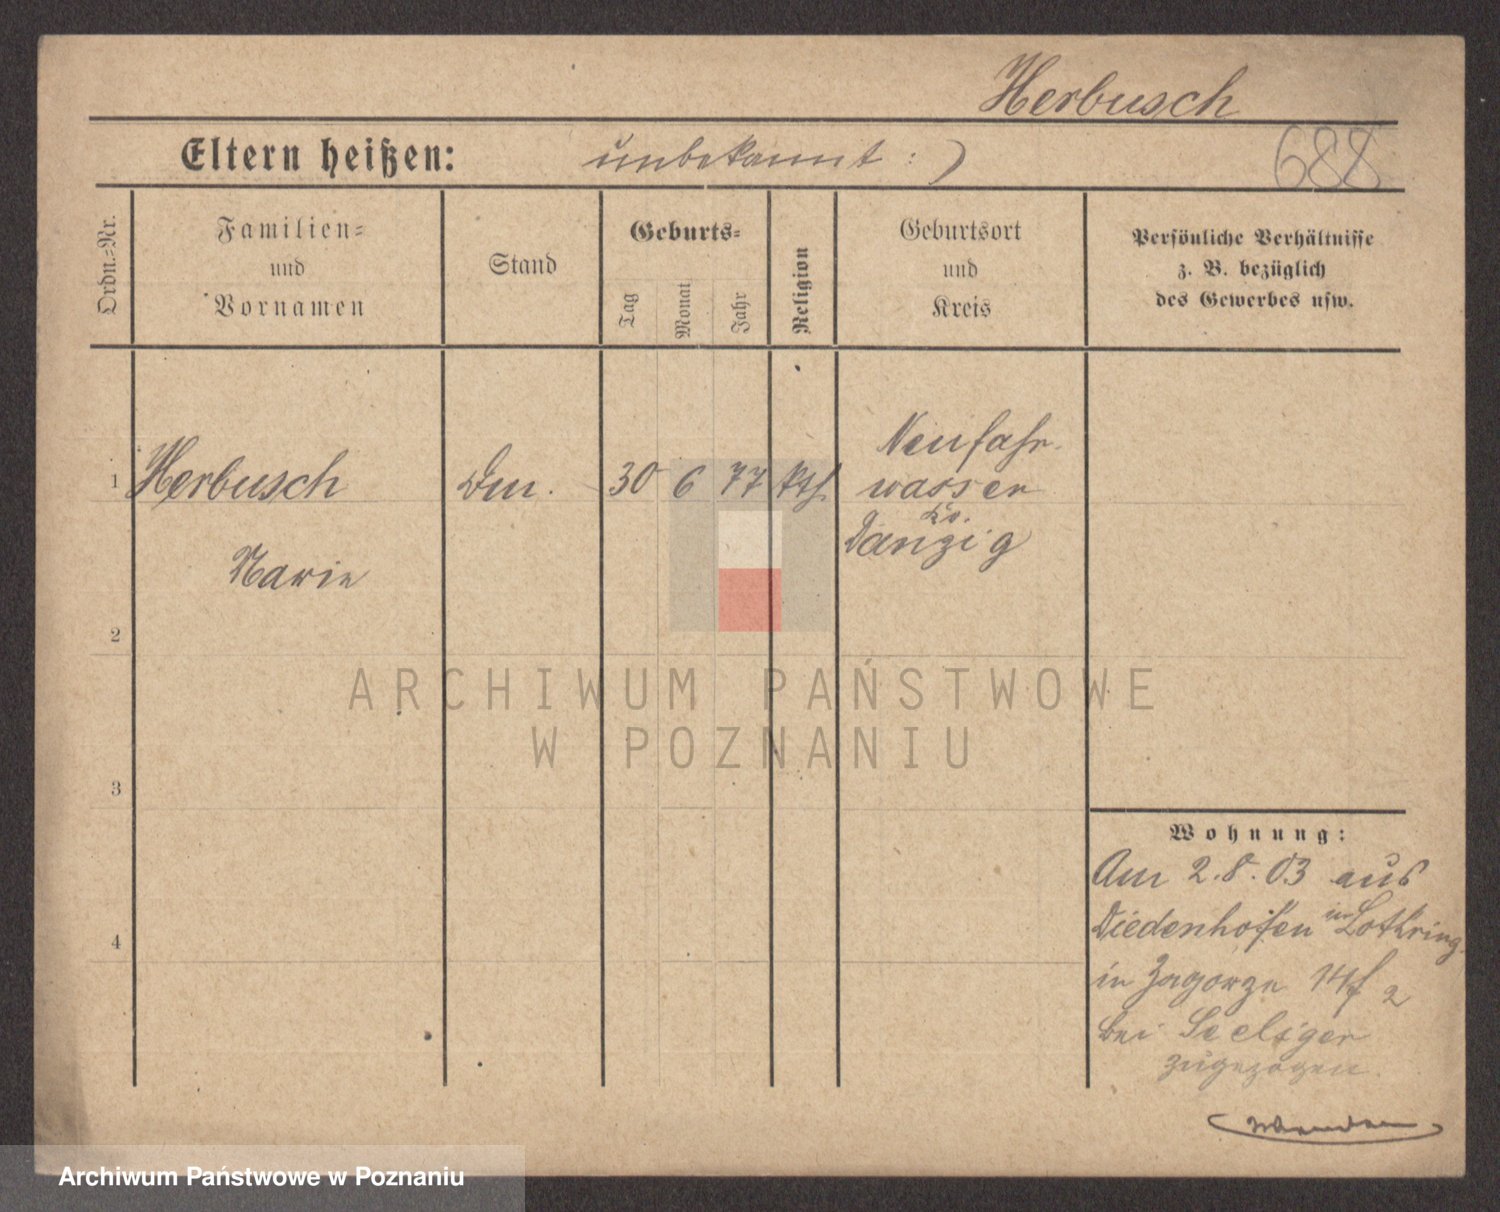 Herbusch
Eltern heißen: unbekannt :)
688
Ordn.-Nr.
Familien-
und
Vornamen
Stand
Geburts-
Tag
Monat
Jahr
Religion
Geburtsort
und
Kreis
Persönliche Verhältnisse
z. B. bezüglich
des Gewerbes usw.
1 Herbusch 30 6 77 kth.
Marie
Neufahr-
wasser
Kr.
Danzig
2
3
4
Wohnung:
Am 2.8.03 aus
Diedenhofen in Lothring.
in Zagorze 2
bei Seeliger
zugezogen.
ARCHIWUM PAŃSTWOWE
W POZNANIU
Archiwum Państwowe w Poznaniu